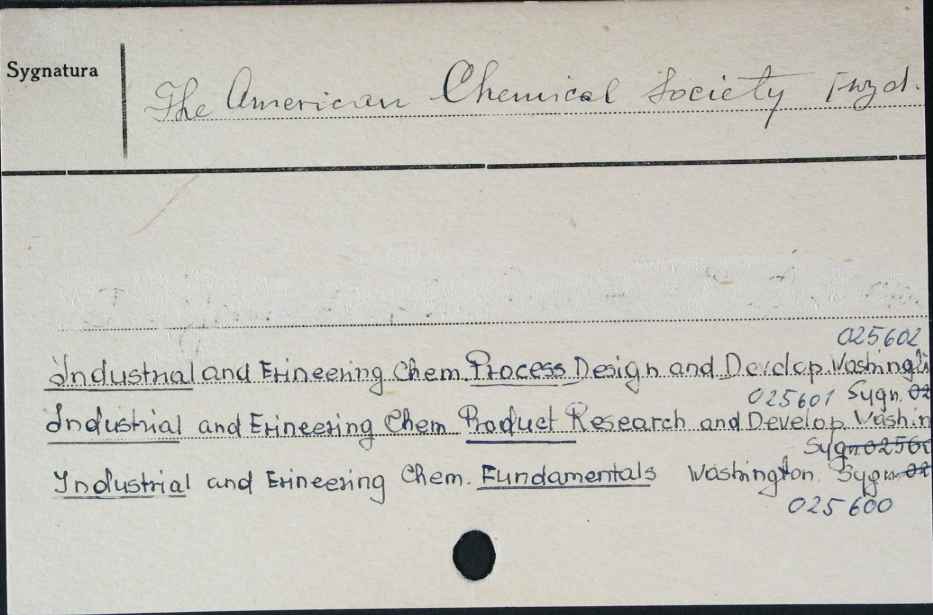 Sygnatura
The American Chemical Society
025602
Industrial and Erineering Chem. Process Design and Develop. Washingt
025601 Sygn. 02
Industrial and Erineering Chem Product Research and Develop. Washin
Sygn 0256
Industrial and Erineering Chem. Fundamentals Washington. Sygn. 02
025600